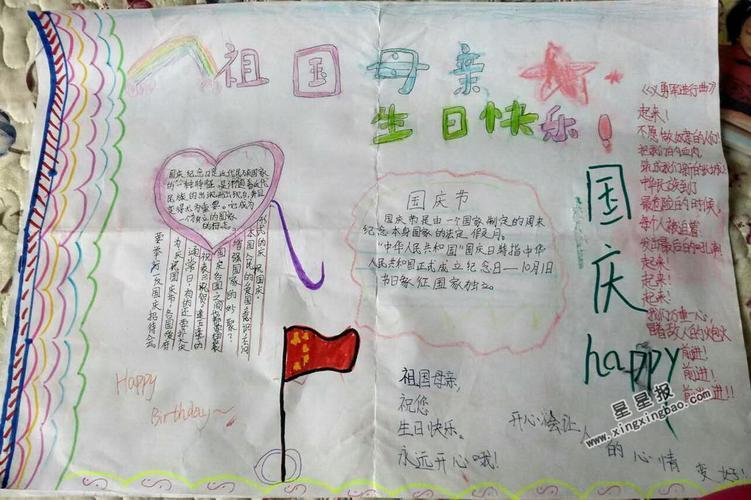 祖国母亲
生日快乐!
国庆纪念日是近代民族国家
的一种特征,是伴随着近代
民族国家的出现而出现的,并且
变得尤为重要。它成为
一个独立的国家
的标志
国庆节
国庆节是由一个国家制定的用来
纪念本身国家的法定假日。
"中华人民共和国"国庆日特指中华
人民共和国正式成立纪念日——10月1日
为日象征国家独立。
《义勇军进行曲》
起来!
不愿做奴隶的人们
把我们的血肉
筑成我们新的长城!
中华民族到了
最危险的时候,
每个人被迫着
发出最后的吼声
起来!
起来!
起来!
我们万众一心,
冒着敌人的炮火
前进!
前进!
前进!进!!
国庆
happy
Happy
Birthday~
祖国母亲,
祝您
生日快乐。
永远开心哦!
开心会让人
的心情
变好!
星星报
www.xingxingbao.com